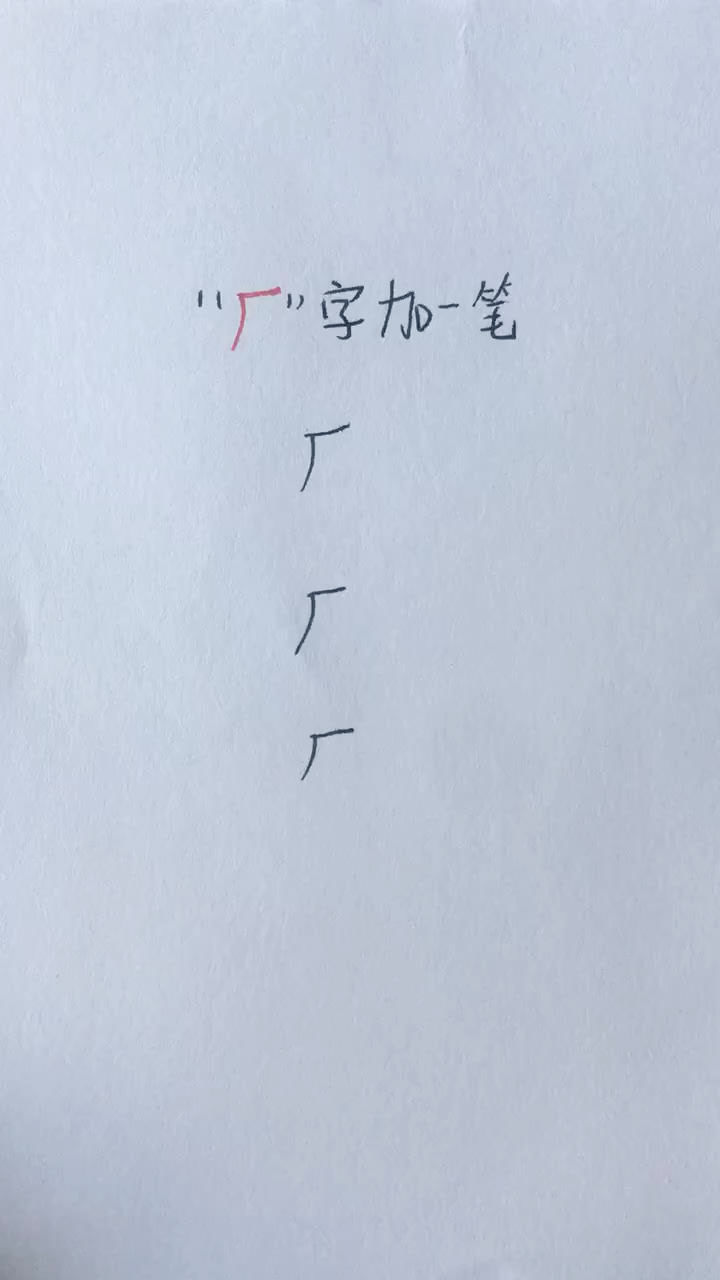 “厂”字加一笔
厂
厂
厂